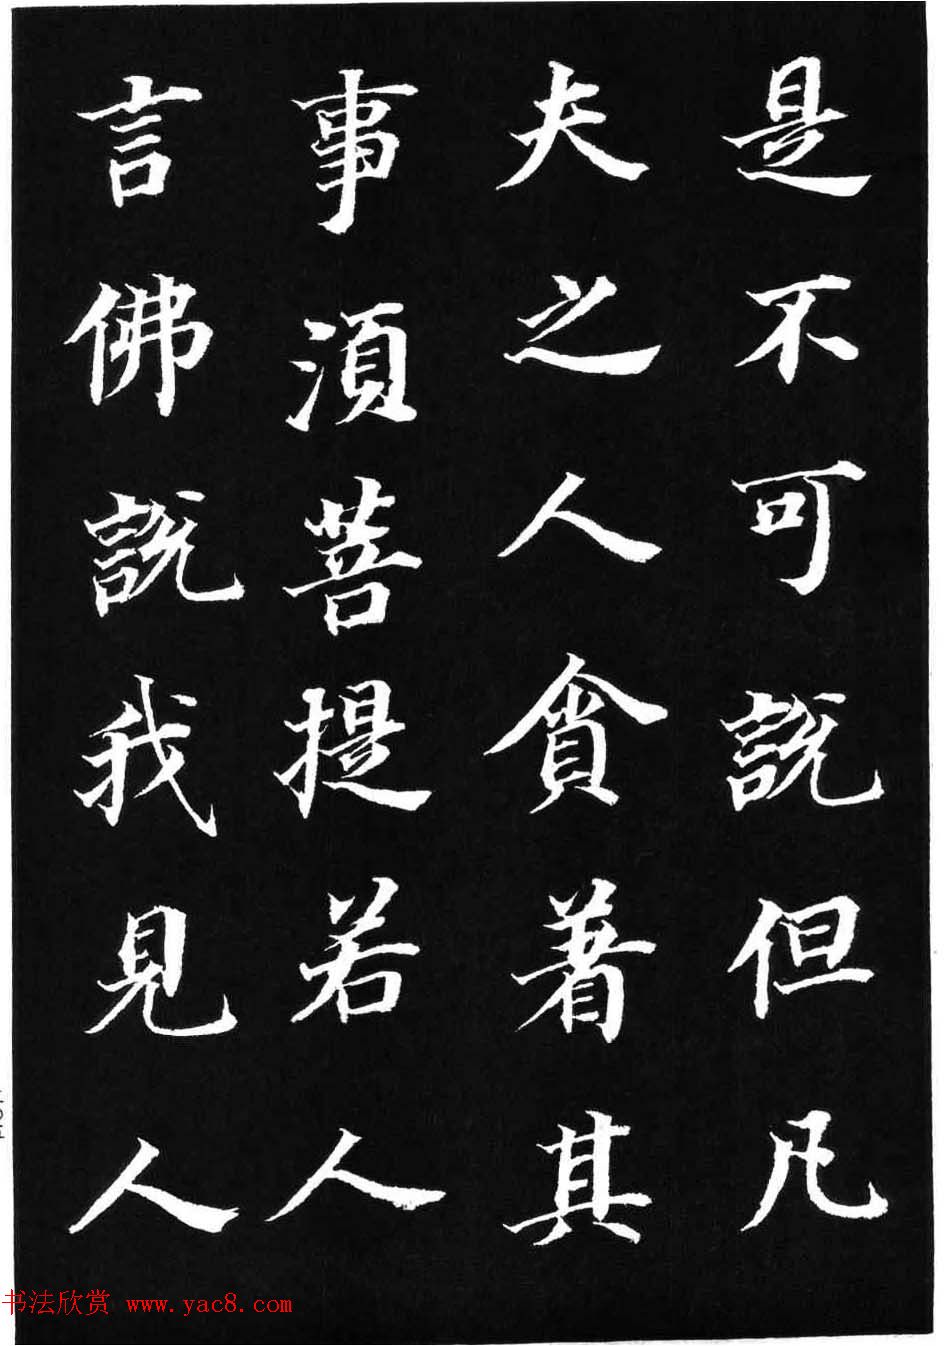 是不可説但凡
夫之人貪著其
事須菩提若人
言佛説我見人
书法欣赏 www.yac8.com